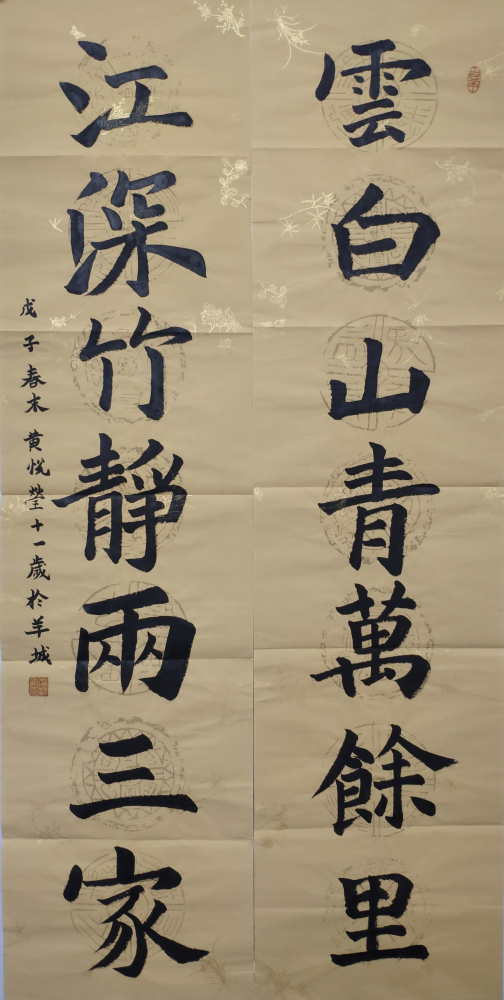 雲白山青萬餘里
江深竹靜兩三家
戊子春末黄悦瑩十一歲於羊城